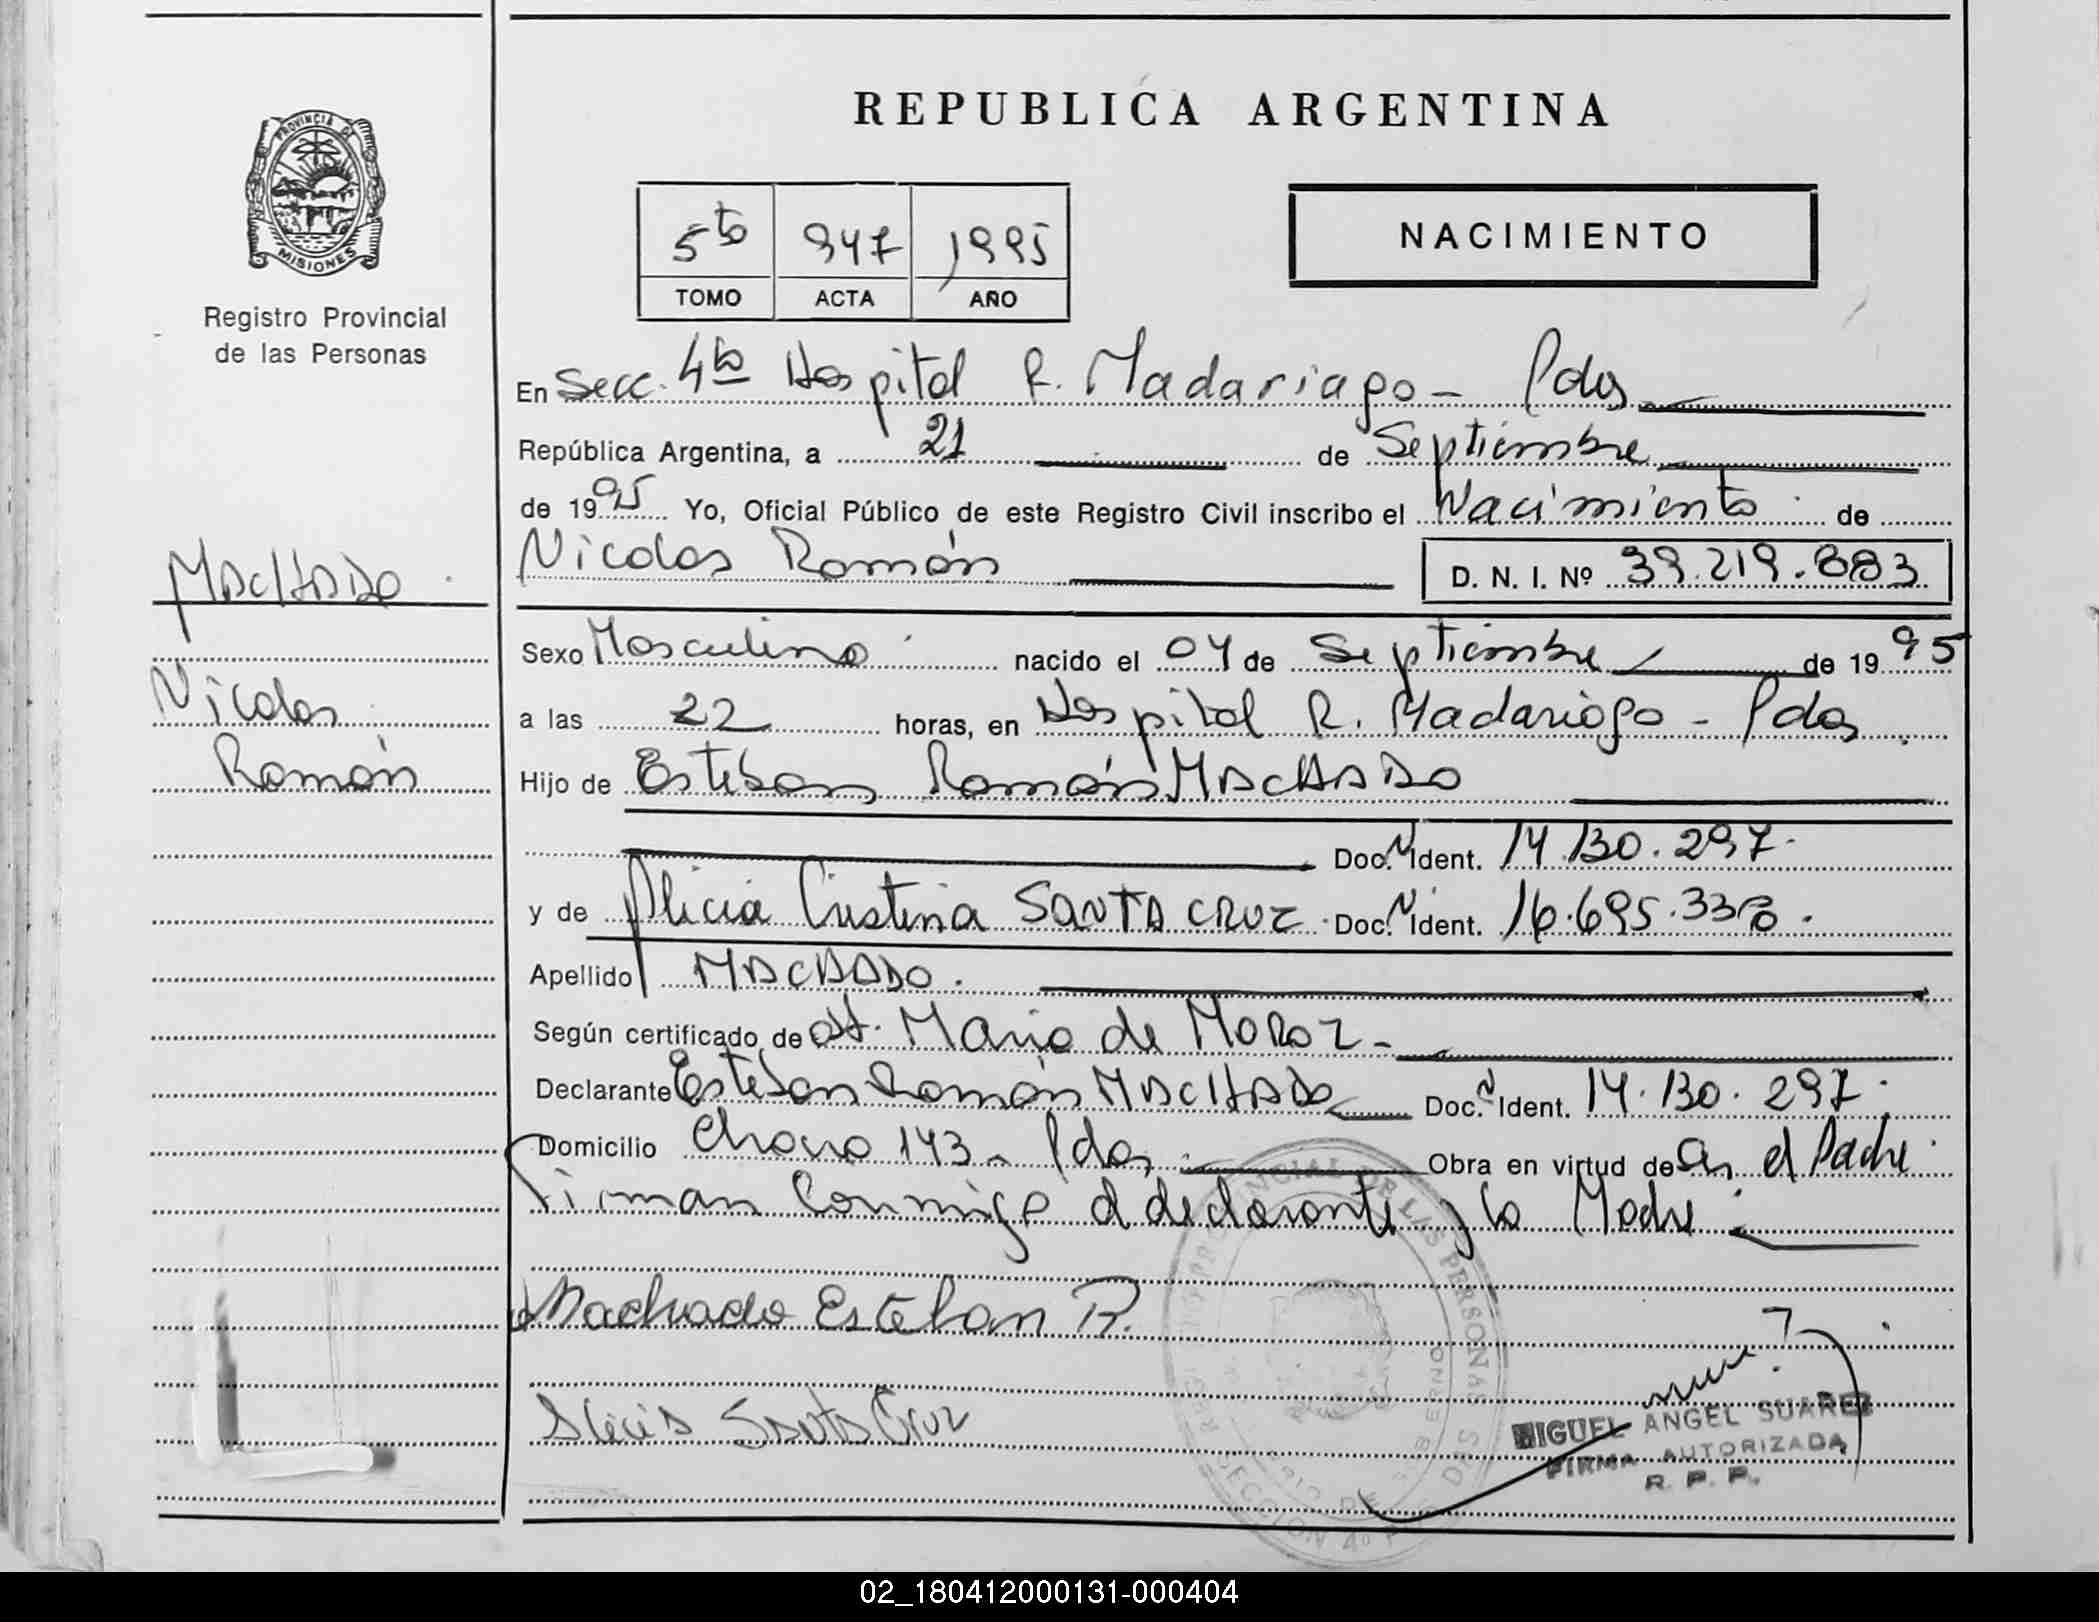 REPUBLICA ARGENTINA
PROVINCIA DE
MISIONES
Registro Provincial
de las Personas
5to 947 1995
TOMO ACTA AÑO
NACIMIENTO
En Secc. 4ta Hospital R. Madariaga - Pdas
República Argentina, a 21 de Septiembre
de 1995 Yo, Oficial Público de este Registro Civil inscribo el Nacimiento de
Nicolas Román D. N. I. Nº 39.219.883
MACHADO
Nicolas
Román
Sexo Masculino nacido el 04 de Septiembre de 1995
a las 22 horas, en Hospital R. Madariaga - Pdas
Hijo de Esteban Román MACHADO
Doc. N Ident. 14.130.297.
y de Alicia Cristina SANTA CRUZ. Doc. N Ident. 16.695.338.
Apellido MACHADO.
Según certificado de Maria de Moroz -
Declarante Esteban Román MACHADO Doc. N Ident. 14.130.297.
Domicilio Chaco 143 - Pdas, Obra en virtud de el Padre.
Firman Conmigo el declarante y la Madre.
Machado Esteban R.
Alicia Santa Cruz
MIGUEL ANGEL SUAREZ
FIRMA AUTORIZADA
R. P. P.
02_180412000131-000404